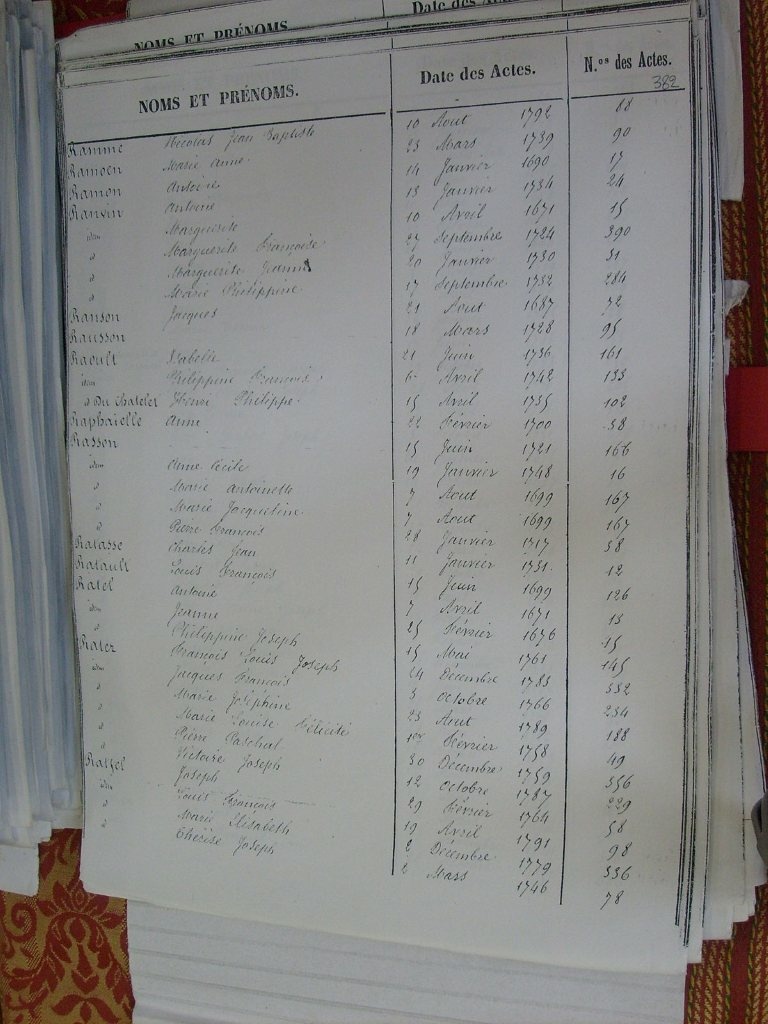 NOMS ET PRÉNOMS. Date des Actes.
NOMS ET PRÉNOMS. Date des Actes. N.os des Actes.
382
Ramme Nicolas Jean Baptiste 10 Aout 1792 88
Ramoen Marie Anne 23 Mars 1739 90
Ramon Antoine 14 Janvier 1690 17
Ranvin Antoine 13 Janvier 1734 24
idem Marguerite 10 Avril 1671 15
d Marguerite Françoise 27 Septembre 1724 390
d Marguerite Jeanne 20 Janvier 1730 31
d Marie Philippine 17 Septembre 1732 284
Ranson Jacques 21 Aout 1687 72
Rausson 18 Mars 1728 95
Raoult Isabelle 21 Juin 1736 161
idem Philippine François 6 Avril 1742 133
d Du Chatelet Henri Philippe 15 Avril 1735 102
Raphaielle Anne 22 Février 1700 58
Rasson 15 Juin 1721 166
idem Anne Cécile 19 Janvier 1748 16
d Marie Antoinette 7 Aout 1699 167
d Marie Jacqueline 7 Aout 1699 167
d Pierre François 28 Janvier 1717 38
Ratasse Charles Jean 11 Janvier 1731 12
Ratault Louis François 15 Juin 1699 126
Ratel Antoine 7 Avril 1671 13
idem Jeanne 25 Février 1676 15
d Philippine Joseph 15 Mai 1761 145
Rater François Louis Joseph 24 Décembre 1783 332
idem Jacques François 3 Octobre 1766 234
d Marie Joséphine 23 Aout 1789 188
d Marie Louise Félicité 1er Février 1758 49
d Pierre Paschal 30 Décembre 1759 356
d Victoire Joseph 12 Octobre 1787 229
Ratzel Joseph 29 Février 1764 58
idem Louis François 19 Avril 1791 98
d Marie Elisabeth 2 Décembre 1779 336
d Thérèse Joseph 2 Mars 1746 78